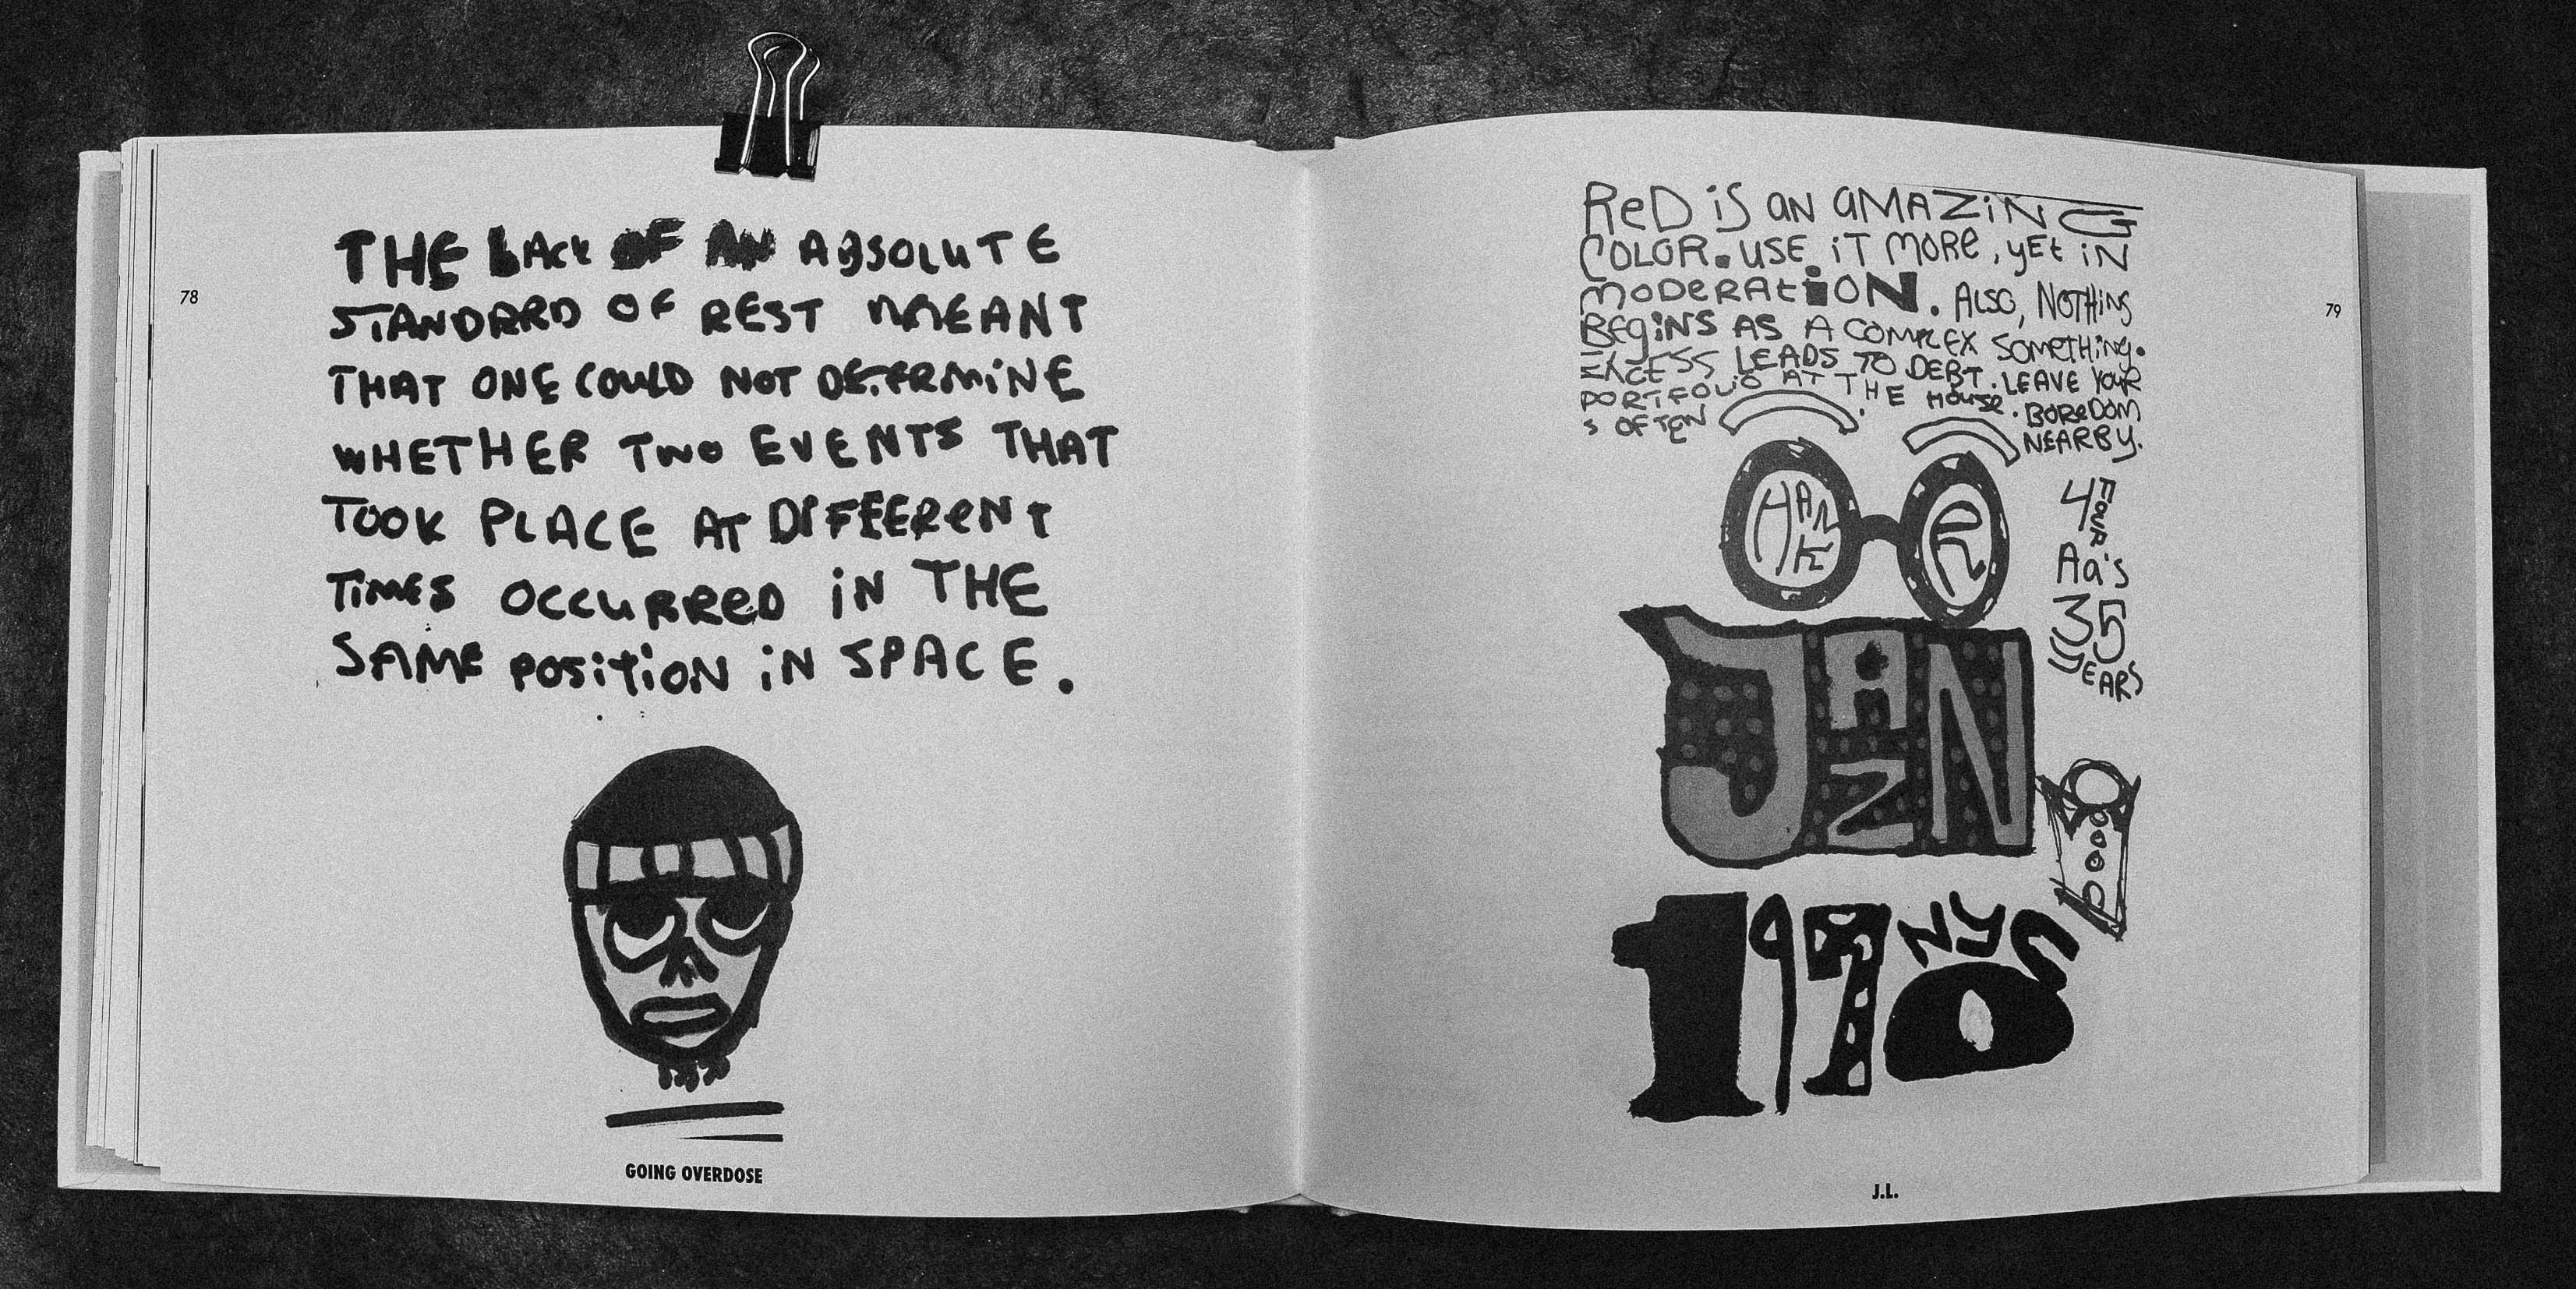 78
THE LACK OF AN ABSOLUTE
STANDARD OF REST MEANT
THAT ONE COULD NOT DETERMINE
WHETHER TWO EVENTS THAT
TOOK PLACE AT DIFFERENT
TIMES OCCURRED IN THE
SAME POSITION IN SPACE.
GOING OVERDOSE
ReD iS aN aMAZiNG
COLOR. USE iT MORe, yEt iN
MODERAtiON. ALSO, NOTHiNg
BEgiNS AS A COMPLEX SOMETHiNg.
EXCESS LEADS TO DEBT. LEAVE YOUR
PORTFOLiO AT THE HOUSE. BOReDOM
S OFTEN NEARBY.
79
HANK
R
4
Aa's
35
yEARS
JANZN
NYC
1970
J.L.